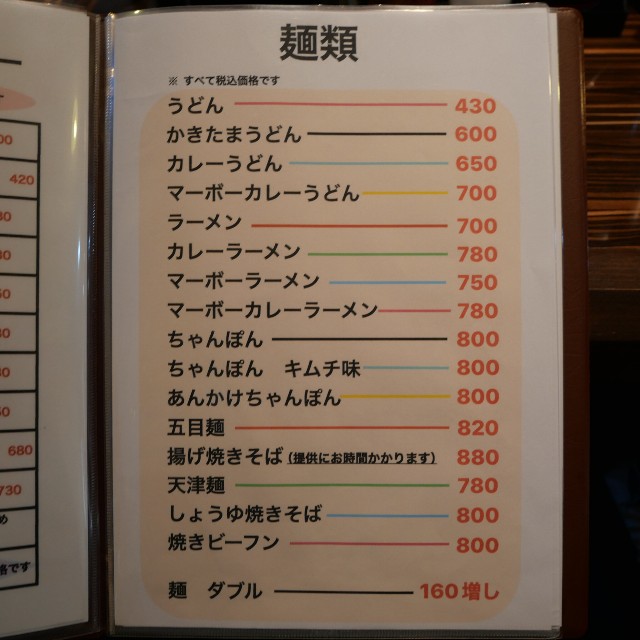 麺類
※ すべて税込価格です
うどん 430
かきたまうどん 600
カレーうどん 650
マーボーカレーうどん 700
ラーメン 700
カレーラーメン 780
マーボーラーメン 750
マーボーカレーラーメン 780
ちゃんぽん 800
ちゃんぽん　キムチ味 800
あんかけちゃんぽん 800
五目麺 820
揚げ焼きそば (提供にお時間かかります) 880
天津麺 780
しょうゆ焼きそば 800
焼きビーフン 800
麺　ダブル 160増し
420
680
730